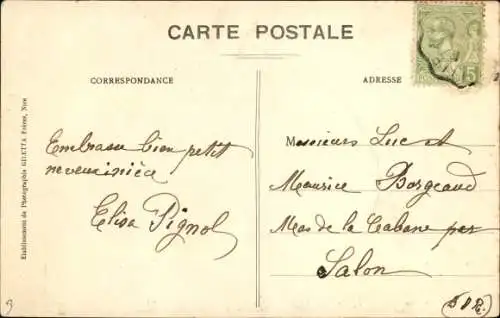 CARTE POSTALE
CORRESPONDANCE
ADRESSE
5
Etablissement de Photographie GILETTA Frères, Nice
Embrasse bien petit
Elisa Pignol
Messieurs Luc et
Maurice Borgeaud
Mas de la Cabane par
Salon
(B d R.)